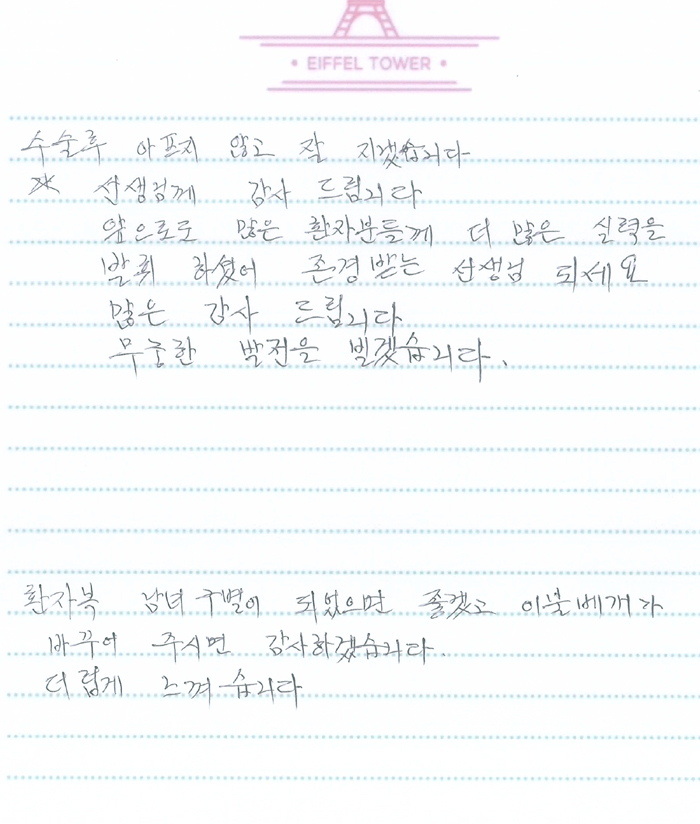 • EIFFEL TOWER •
수술후 아프지 않고 잘 지겠습니다
※ 선생검께 감사 드립니다
앞으로도 많은 환자분들께 더 많은 실력을
발휘 하셨어 존경받는 선생님 되세요
많은 감사 드립니다
무궁한 발전을 빌겠습니다.
환자복 남녀구별이 되었으면 좋겠고 이불베개가
바꾸어 주시면 감사하겠습니다.
더럽게 느껴습니다